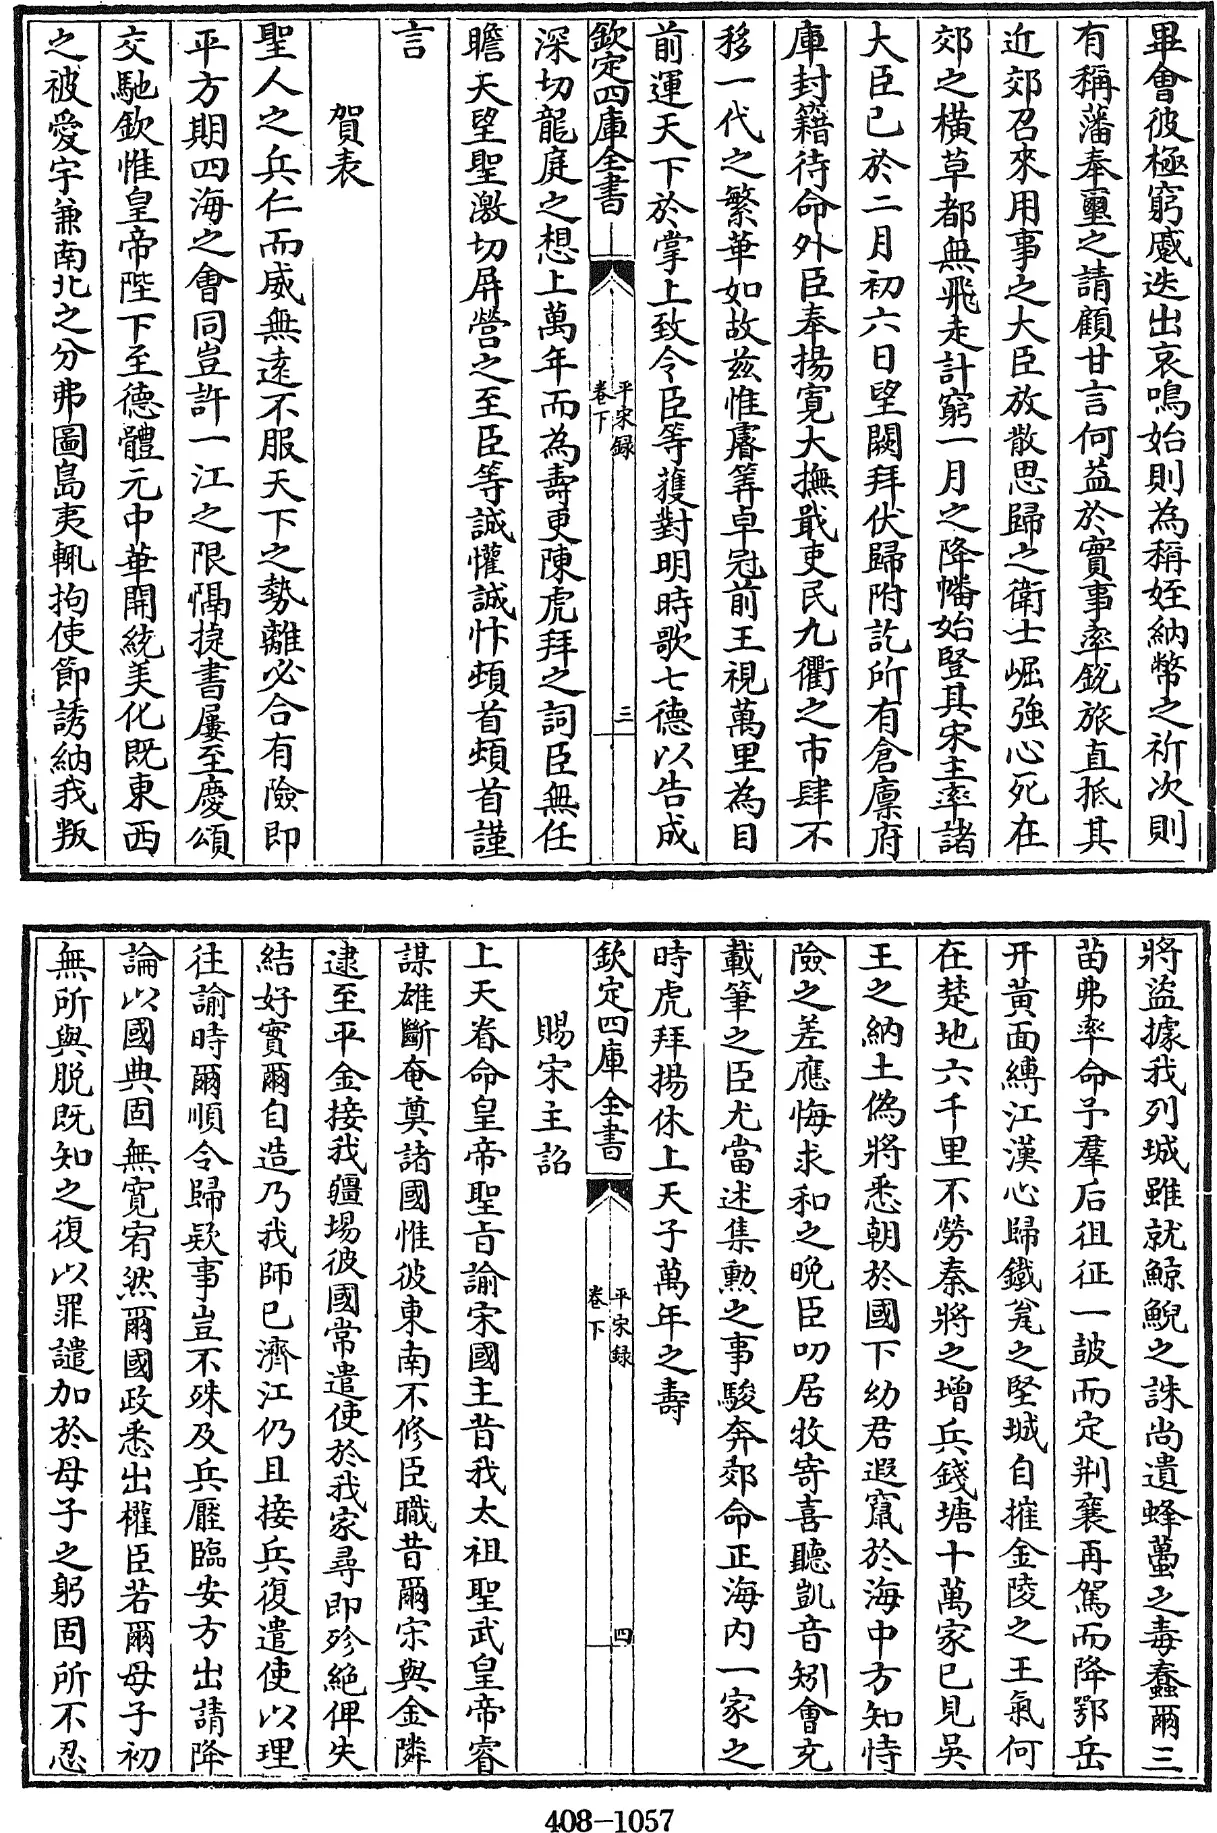 畢會彼極窮蹙迭出哀鳴始則為稱姪納幣之祈次則
有稱藩奉璽之請顧甘言何益於實事率銳旅直抵其
近郊召來用事之大臣放散思歸之衛士崛強心死在
郊之橫草都無飛走計窮一月之降幡始豎其宋主率諸
大臣已於二月初六日望闕拜伏歸附訖所有倉廪府
庫封籍待命外臣奉揚寛大撫戢吏民九衢之市肆不
移一代之繁華如故兹惟睿筭卓冠前王視萬里為目
前運天下於掌上致令臣等獲對明時歌七德以告成
欽定四庫全書
平宋録
卷下
三
深切龍庭之想上萬年而為壽更陳虎拜之詞臣無任
瞻天望聖激切屏營之至臣等誠懽誠忭頓首頓首謹
言
賀表
聖人之兵仁而威無遠不服天下之勢離必合有險即
平方期四海之會同豈許一江之限隔捷書屢至慶頌
交馳欽惟皇帝陛下至德體元中華開統美化既東西
之被愛宇兼南北之分弗圖島夷輒拘使節誘納我叛
將盜據我列城雖就鯨鯢之誅尚遺蜂蠆之毒蠢爾三
苗弗率命予羣后徂征一鼓而定荆襄再駕而降鄂岳
开黃面縛江漢心歸鐵瓮之堅城自摧金陵之王氣何
在楚地六千里不勞秦將之增兵錢塘十萬家已見吳
王之納土偽將悉朝於國下幼君遐竄於海中方知恃
險之差應悔求和之晚臣叨居牧寄喜聽凱音矧會充
載筆之臣尤當述集勲之事駿奔郊命正海内一家之
時虎拜揚休上天子萬年之壽
欽定四庫全書
平宋録
卷下
四
賜宋主詔
上天眷命皇帝聖旨諭宋國主昔我太祖聖武皇帝睿
謀雄斷奄奠諸國惟彼東南不修臣職昔爾宋與金隣
逮至平金接我疆埸彼國常遣使於我家尋即殄絶俾失
結好實爾自造乃我師已濟江仍且接兵復遣使以理
往諭時爾順令歸欵事豈不殊及兵壓臨安方出請降
論以國典固無寛宥然爾國政悉出權臣若爾母子初
無所與脱既知之復以罪譴加於母子之躬固所不忍
408-1057